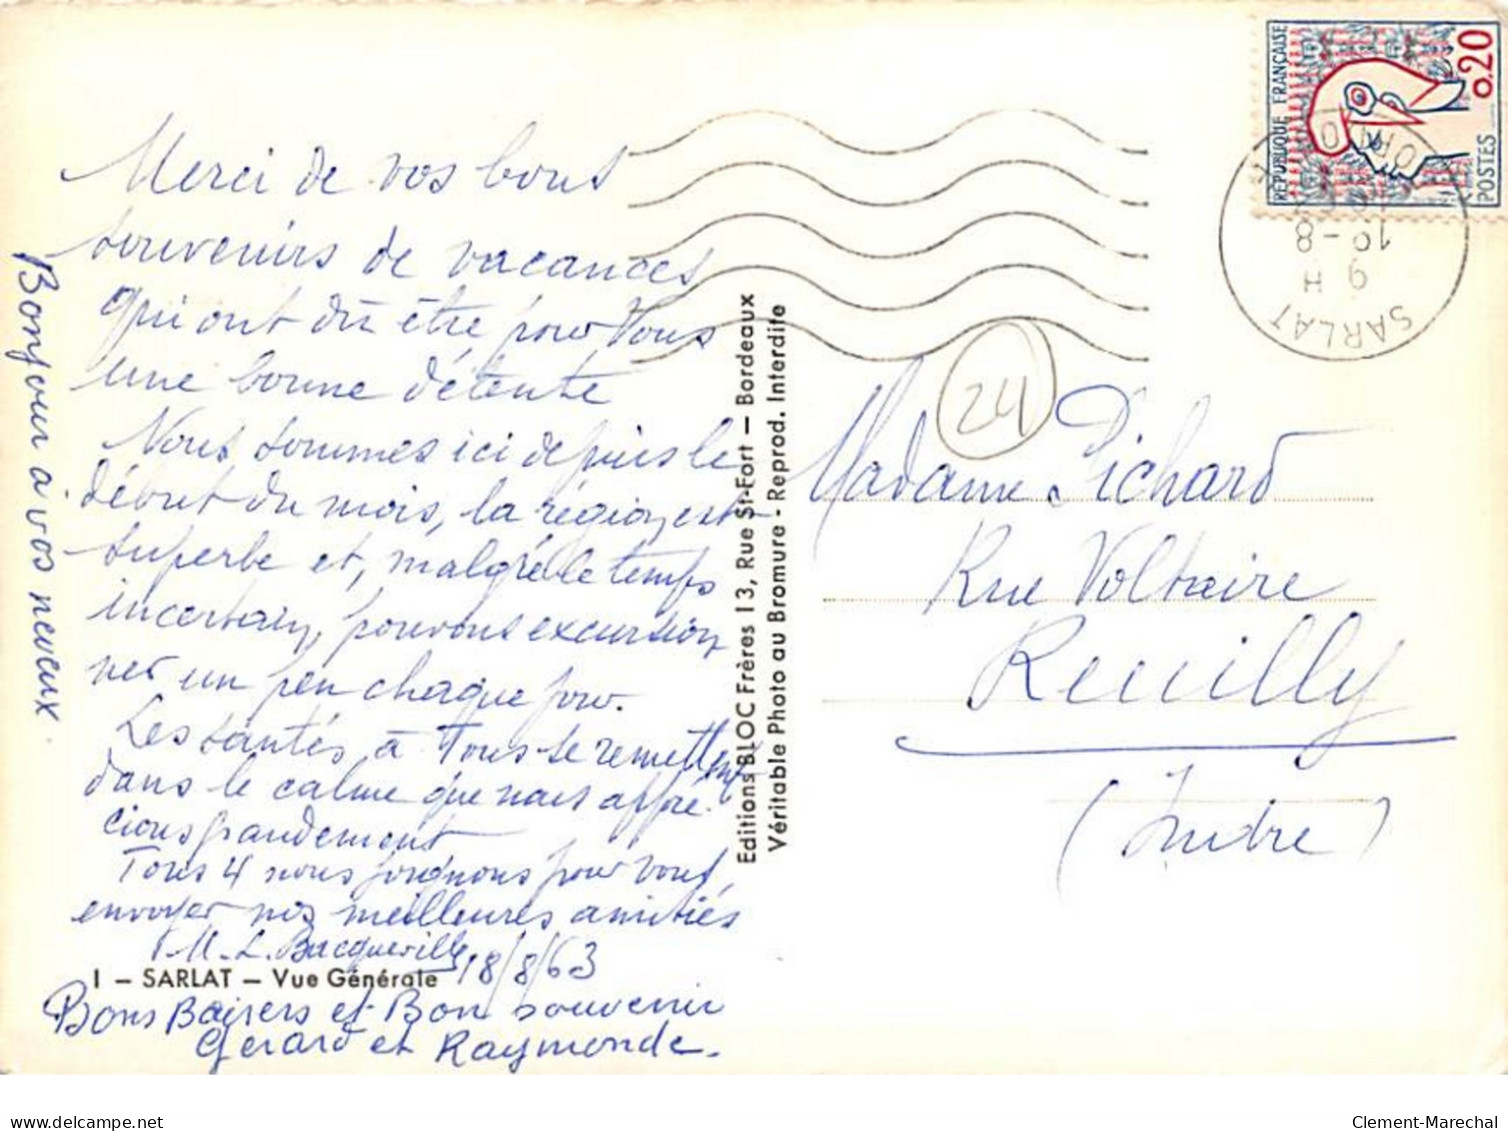 Merci de vos bons
souvenirs de vacances
qui ont dû être pour vous
une bonne détente
Nous sommes ici depuis le
début du mois, la région est
superbe et, malgré le temps
incertain, pouvons excursion
ner un peu chaque jour.
Les santés à Tous se remettent
dans le calme que nous appré
cions grandement
Tous 4 nous joignons pour vous
envoyer nos meilleures amitiés
M.-L. Bacqueville 18/8/63
I – SARLAT – Vue Générale
Bons Baisers et Bon souvenir
Gerard et Raymonde.
Bonjour a vos neveux.
Editions BLOC Frères 13, Rue St-Fort – Bordeaux
Véritable Photo au Bromure - Reprod. Interdite
24
RÉPUBLIQUE FRANÇAISE
0.20
POSTES
SARLAT
9 H
18-8
Madame Pichard
Rue Voltaire
Reuilly
(Indre)
delcampe.net
Clement-Marechal